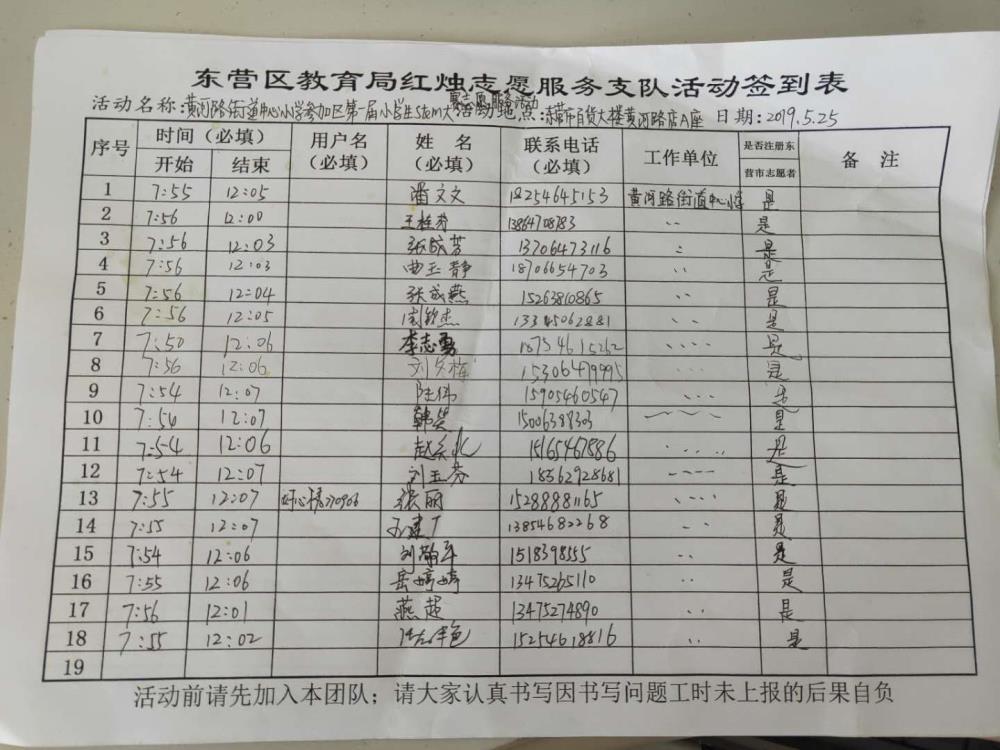 东营区教育局红烛志愿服务支队活动签到表
赛志愿服务活动
活动名称:黄河路街道中心小学参加区第一届小学生stem大 活动地点:东营市百货大楼黄河路店A座 日期:2019.5.25
序号 时间（必填） 用户名（必填） 姓名（必填） 联系电话（必填） 工作单位 是否注册东营市志愿者 备注
开始 结束
1 7:55 12:05 潘文文 18254645153 黄河路街道中心小学 是
2 7:56 12:00 王桂芬 13864708783 ‥ 是
3 7:56 12:03 张 芳 13706473116 ‥ 是
4 7:56 12:03 曲玉静 18706654703 ‥ 是
5 7:56 12:04 张成燕 15263810865 ‥ 是
6 7:56 12:05 杰 ‥ 是
7 7:50 12:06 李志勇 ‥ 是
8 7:56 12:06 刘 梅 15306479995 ‥ 是
9 7:54 12:07 陈伟 15905460547 ‥ 是
10 7:56 12:07 韩 15006388303 是
11 7:54 12:06 赵 15165467886 ‥ 是
12 7:54 12:07 刘玉芬 18562928681 是
13 7:55 12:07 张丽 15288881165 ‥ 是
14 7:55 12:07 广 13854682268 ‥ 是
15 7:54 12:06 刘 军 1518398555 ‥ 是
16 7:55 12:06 岳婷婷 13475265110 ‥ 是
17 7:56 12:01 燕超 13475274890 ‥ 是
18 7:55 12:02 艳 15254618816 ‥ 是
19
活动前请先加入本团队；请大家认真书写因书写问题工时未上报的后果自负